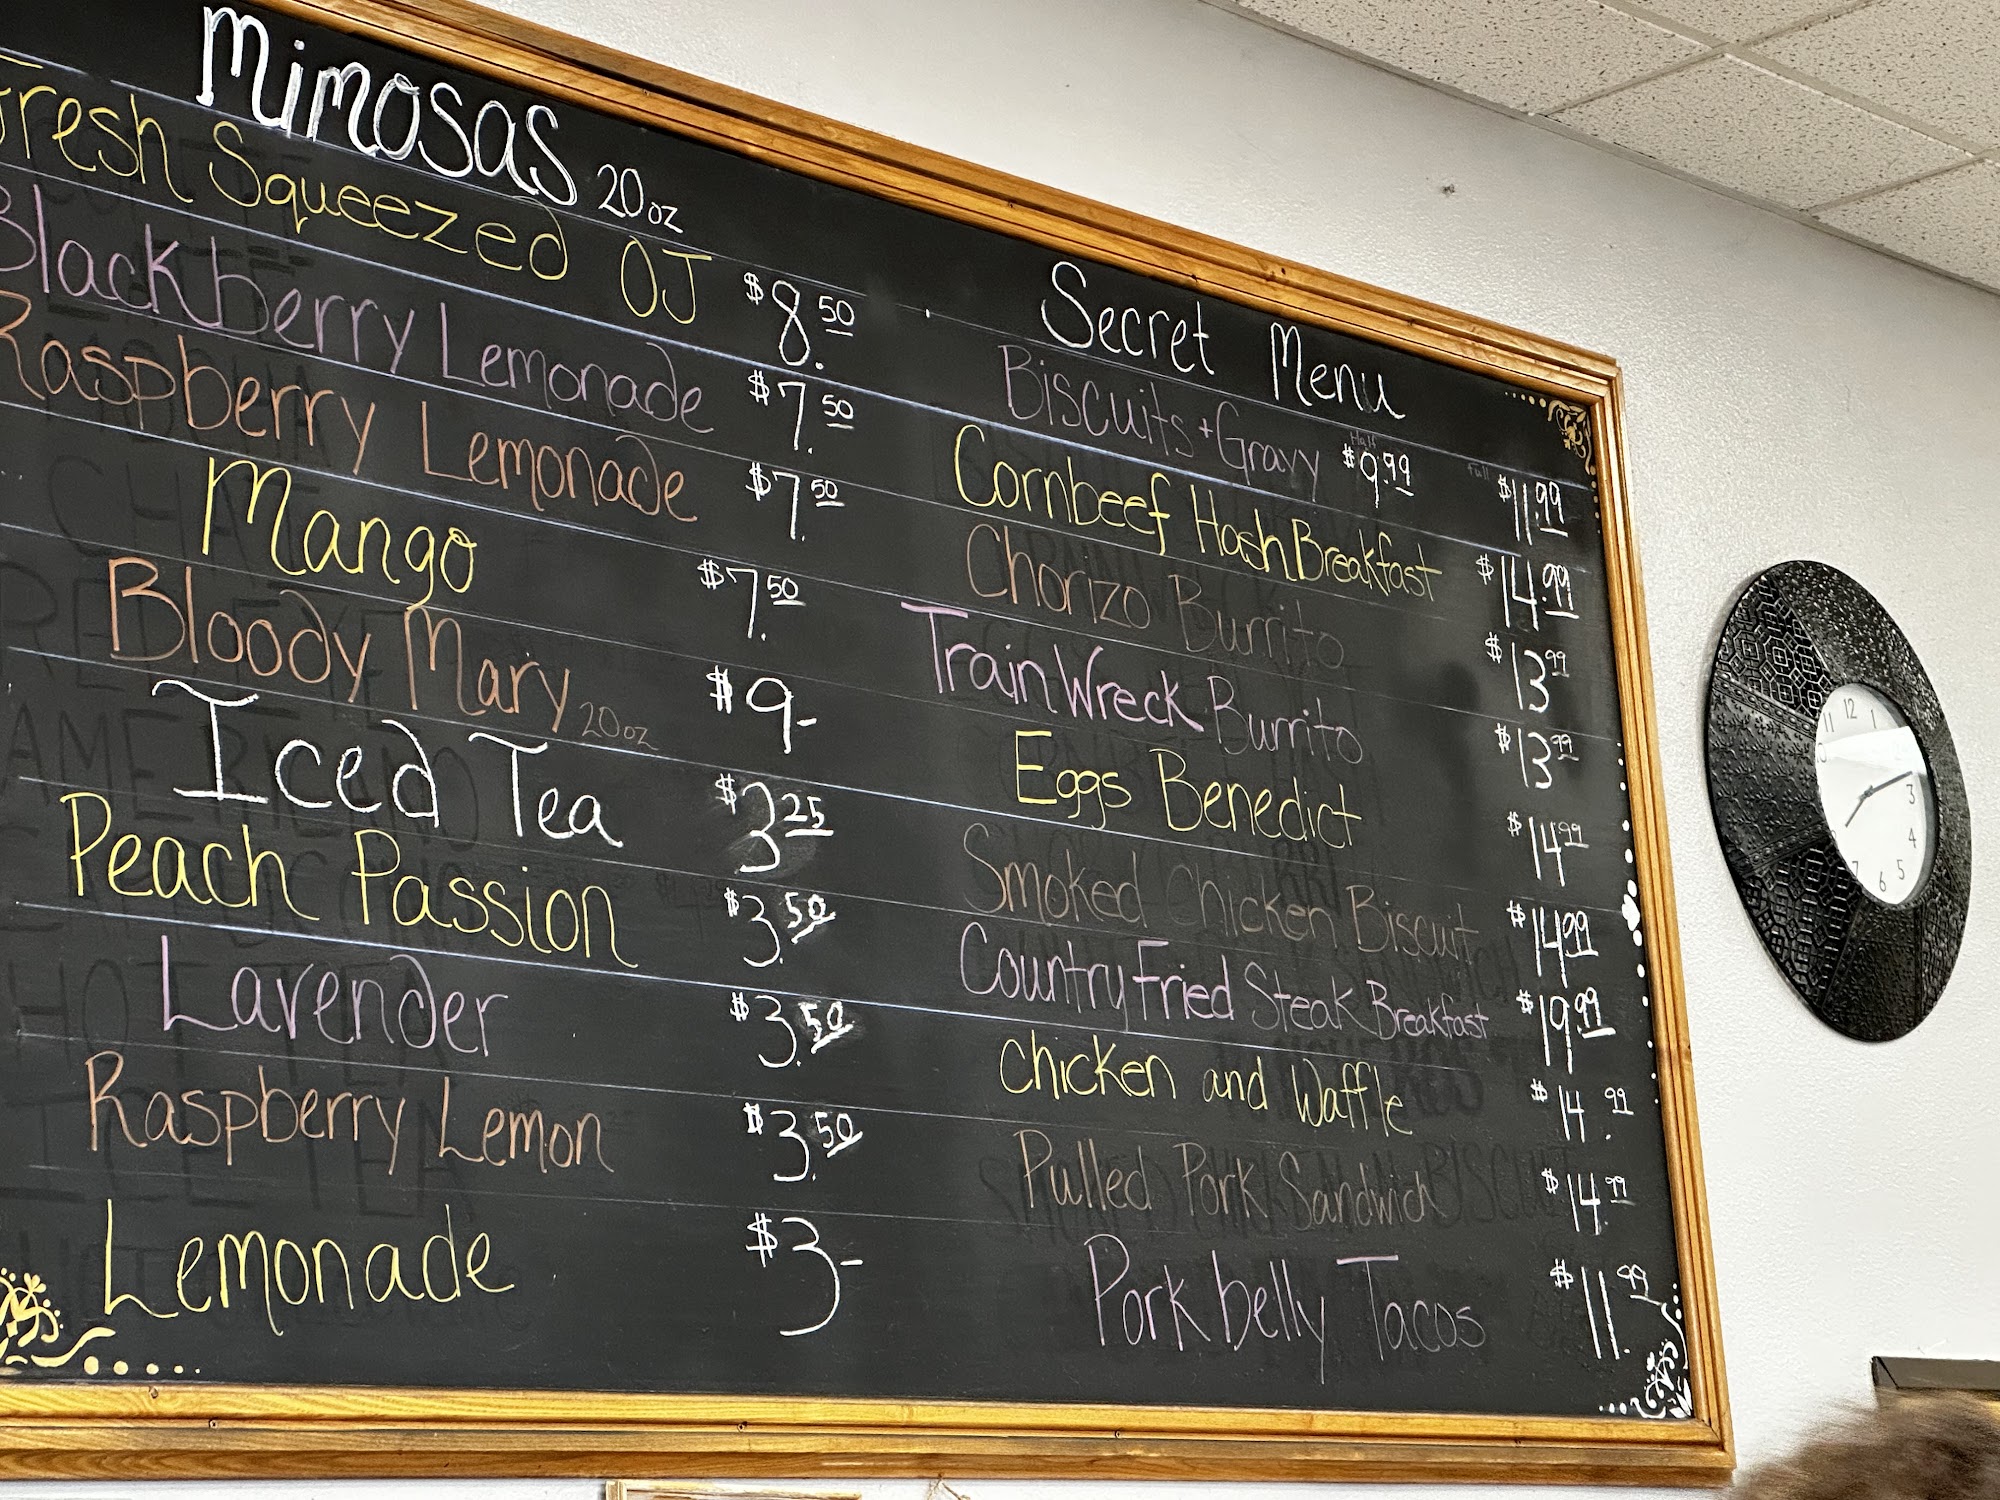 Mimosas 20oz
Fresh Squeezed OJ $8.50
Blackberry Lemonade $7.50
Raspberry Lemonade $7.50
Mango $7.50
Bloody Mary 20oz $9-
Iced Tea $3.25
Peach Passion $3.50
Lavender $3.50
Raspberry Lemon $3.50
Lemonade $3-
Secret Menu
Biscuits + Gravy Half $9.99 Full $11.99
Cornbeef Hash Breakfast $14.99
Chorizo Burrito $13.99
Train Wreck Burrito $13.99
Eggs Benedict $14.99
Smoked Chicken Biscuit $14.99
Country Fried Steak Breakfast $19.99
Chicken and Waffle $14.99
Pulled Pork Sandwich $14.99
Pork belly Tacos $11.99
11 12 1
3
4
7 6 5